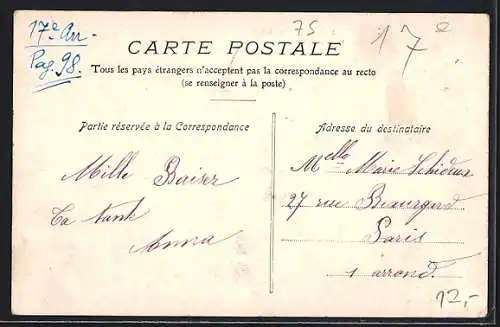 17e Arr.
Pag. 98.
75
17e
CARTE POSTALE
Tous les pays étrangers n'acceptent pas la correspondance au recto
(se renseigner à la poste)
Partie réservée à la Correspondance
Mille Baiser
Ta tante
Anna
Adresse du destinataire
Melle Marie
27 rue Beauregard
Paris
1 arrond.
12,-